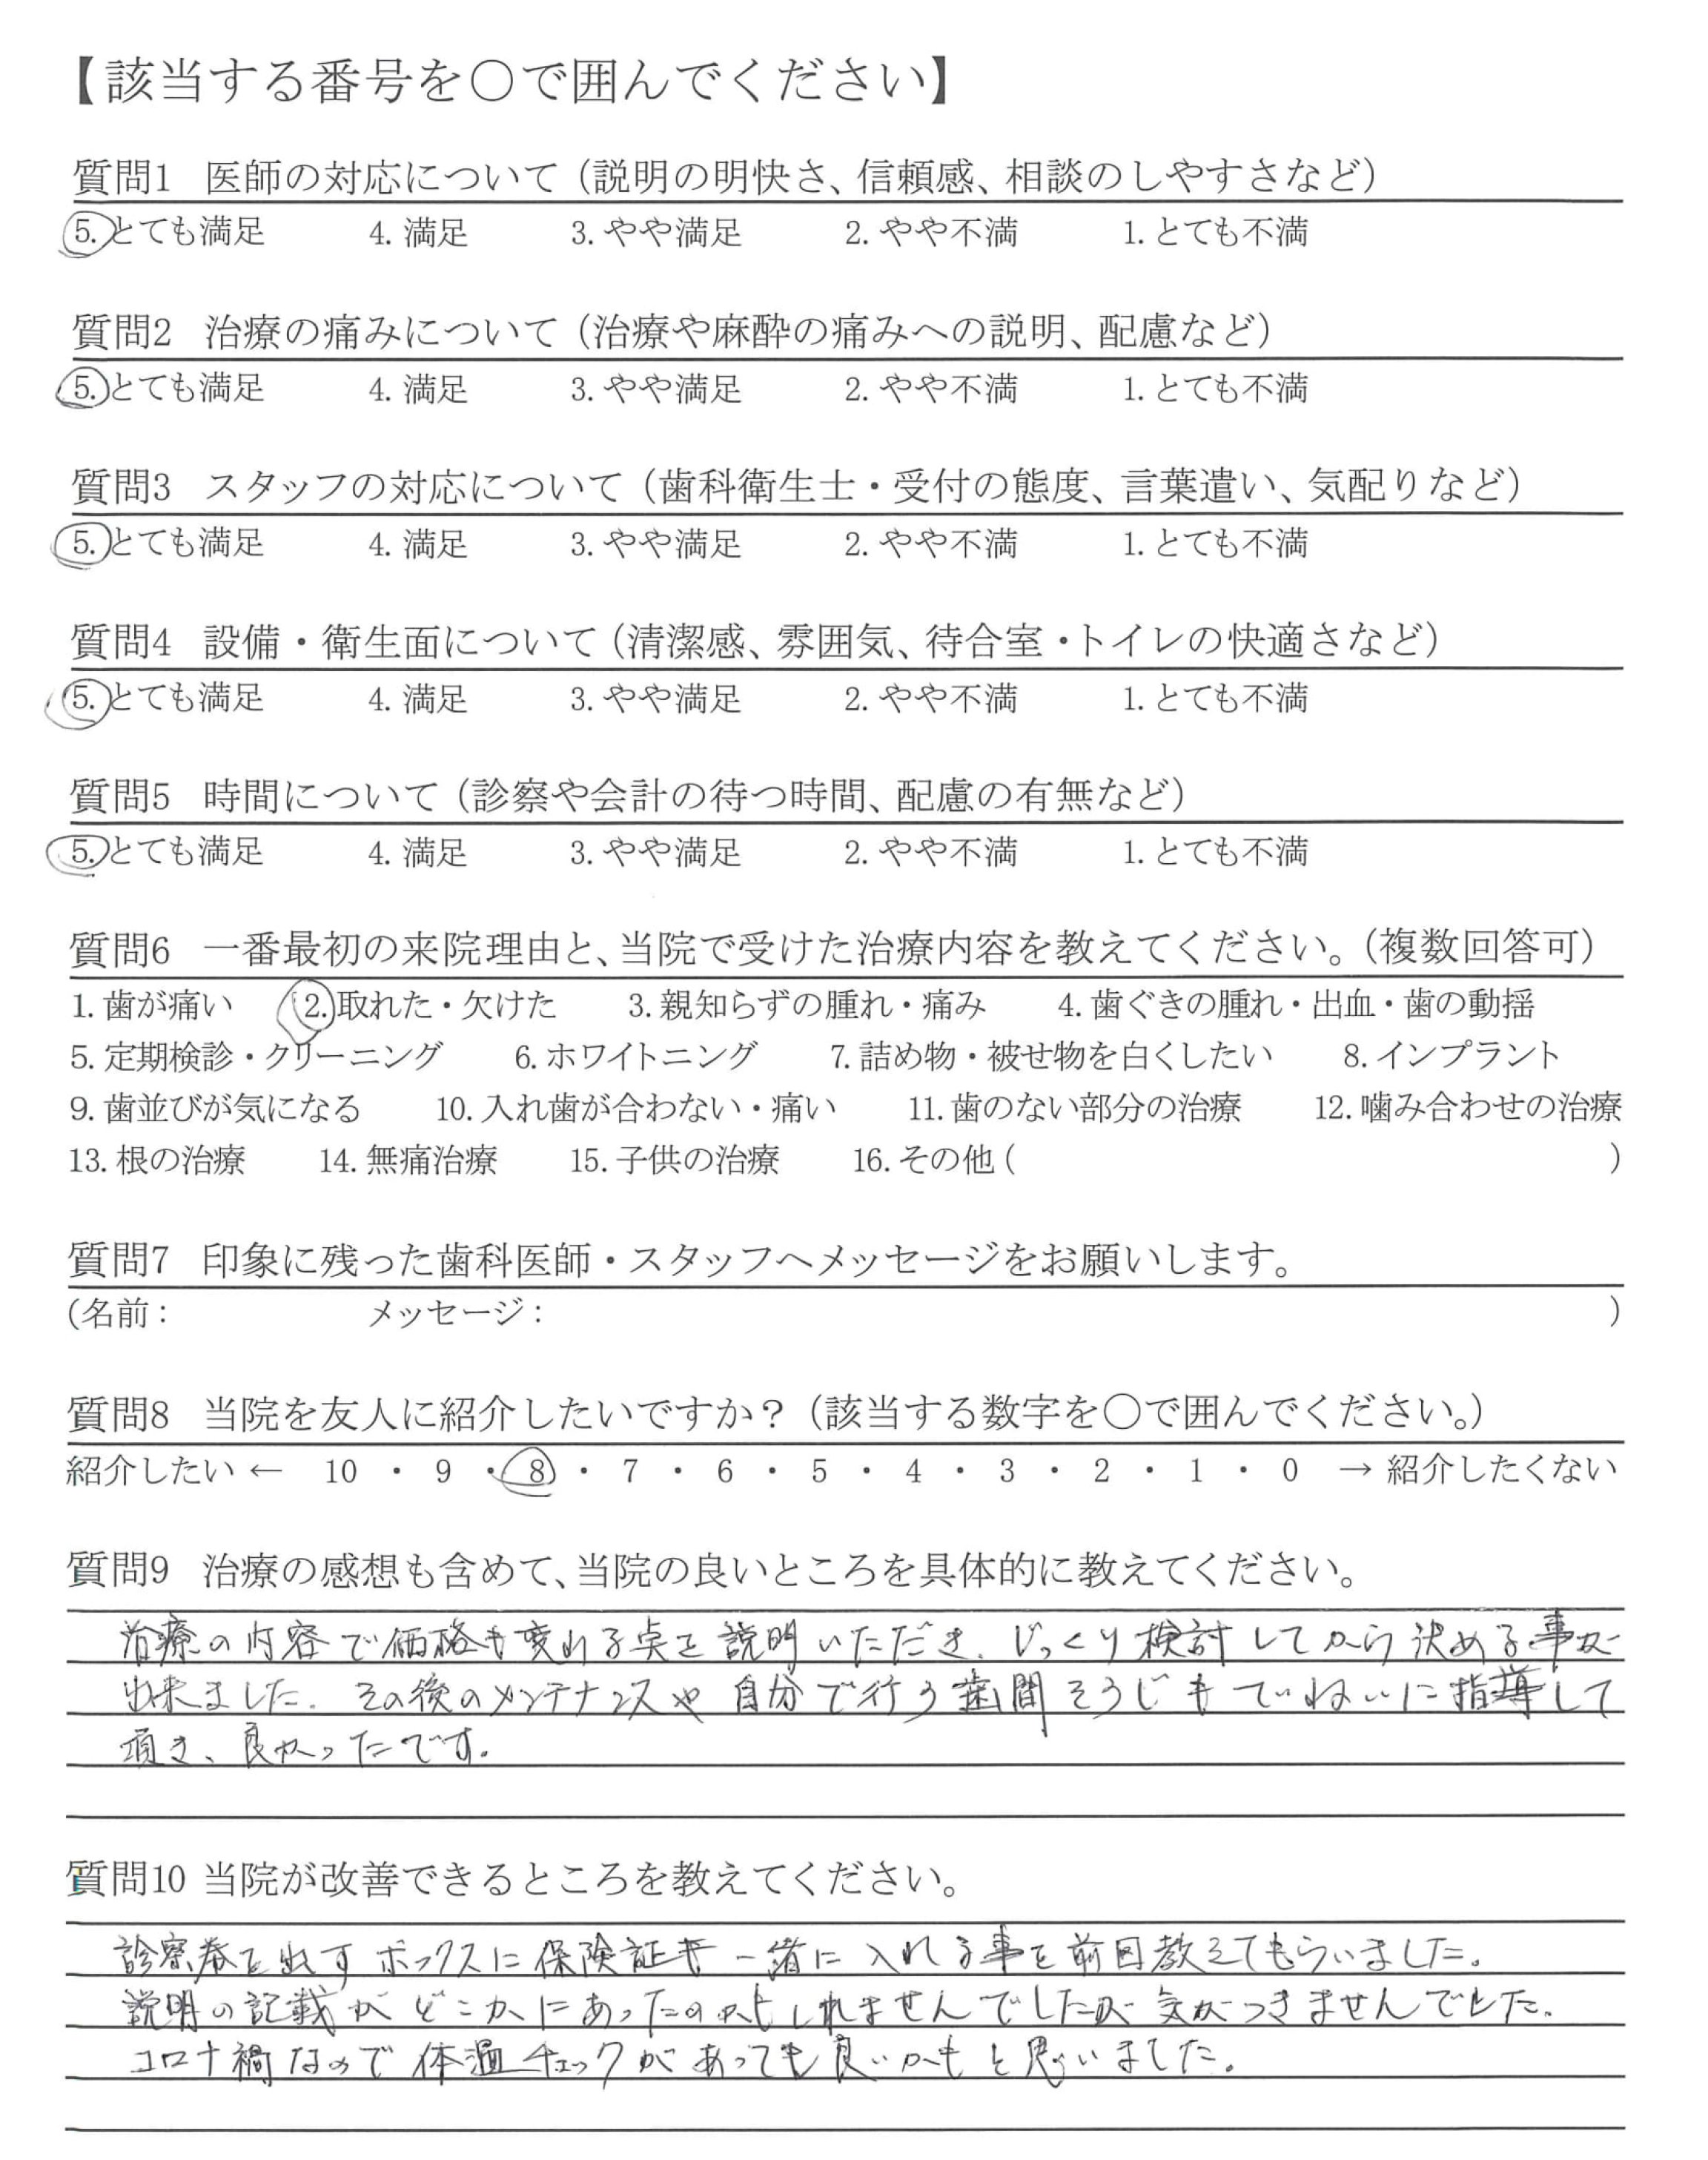 【該当する番号を〇で囲んでください】
質問1 医師の対応について（説明の明快さ、信頼感、相談のしやすさなど）
5. とても満足 4. 満足 3. やや満足 2. やや不満 1. とても不満
質問2 治療の痛みについて（治療や麻酔の痛みへの説明、配慮など）
5. とても満足 4. 満足 3. やや満足 2. やや不満 1. とても不満
質問3 スタッフの対応について（歯科衛生士・受付の態度、言葉遣い、気配りなど）
5. とても満足 4. 満足 3. やや満足 2. やや不満 1. とても不満
質問4 設備・衛生面について（清潔感、雰囲気、待合室・トイレの快適さなど）
5. とても満足 4. 満足 3. やや満足 2. やや不満 1. とても不満
質問5 時間について（診察や会計の待つ時間、配慮の有無など）
5. とても満足 4. 満足 3. やや満足 2. やや不満 1. とても不満
質問6 一番最初の来院理由と、当院で受けた治療内容を教えてください。（複数回答可）
1. 歯が痛い 2. 取れた・欠けた 3. 親知らずの腫れ・痛み 4. 歯ぐきの腫れ・出血・歯の動揺
5. 定期検診・クリーニング 6. ホワイトニング 7. 詰め物・被せ物を白くしたい 8. インプラント
9. 歯並びが気になる 10. 入れ歯が合わない・痛い 11. 歯のない部分の治療 12. 噛み合わせの治療
13. 根の治療 14. 無痛治療 15. 子供の治療 16. その他（ ）
質問7 印象に残った歯科医師・スタッフへメッセージをお願いします。
（名前： メッセージ： ）
質問8 当院を友人に紹介したいですか？（該当する数字を〇で囲んでください。）
紹介したい ← 10 ・ 9 ・ 8 ・ 7 ・ 6 ・ 5 ・ 4 ・ 3 ・ 2 ・ 1 ・ 0 → 紹介したくない
質問9 治療の感想も含めて、当院の良いところを具体的に教えてください。
治療の内容で価格も変わる点を説明いただき、じっくり検討してから決める事が
出来ました。その後のメンテナンスや自分で行う歯間そうじもていねいに指導して
頂き、良かったです。
質問10 当院が改善できるところを教えてください。
診察券を出すボックスに保険証も一緒に入れる事を前回教えてもらいました。
説明の記載がどこかにあったのかもしれませんでしたが気がつきませんでした。
コロナ禍なので体温チェックがあっても良いかもと思いました。